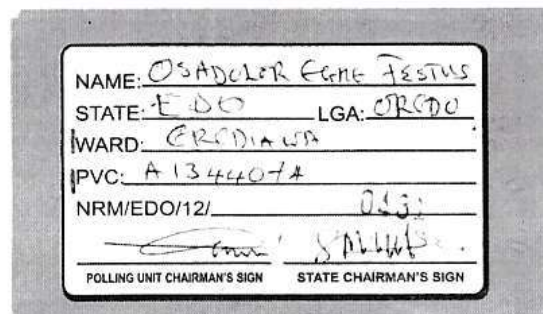 NAME: OSADOLOR EGHE FESTUS
STATE: EDO LGA: OREDO
WARD: EREDIAWA
PVC: A134407A
NRM/EDO/12/
POLLING UNIT CHAIRMAN'S SIGN STATE CHAIRMAN'S SIGN